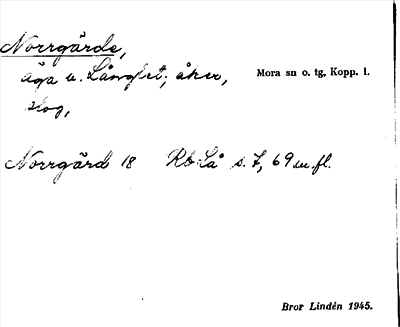 Norrgärde,
äga u. Långlet; åker,
Mora sn o. tg, Kopp. l.
skog,
Norrgård 18 Rb Lå s. 7, 69 m.fl.
Bror Lindén 1945.